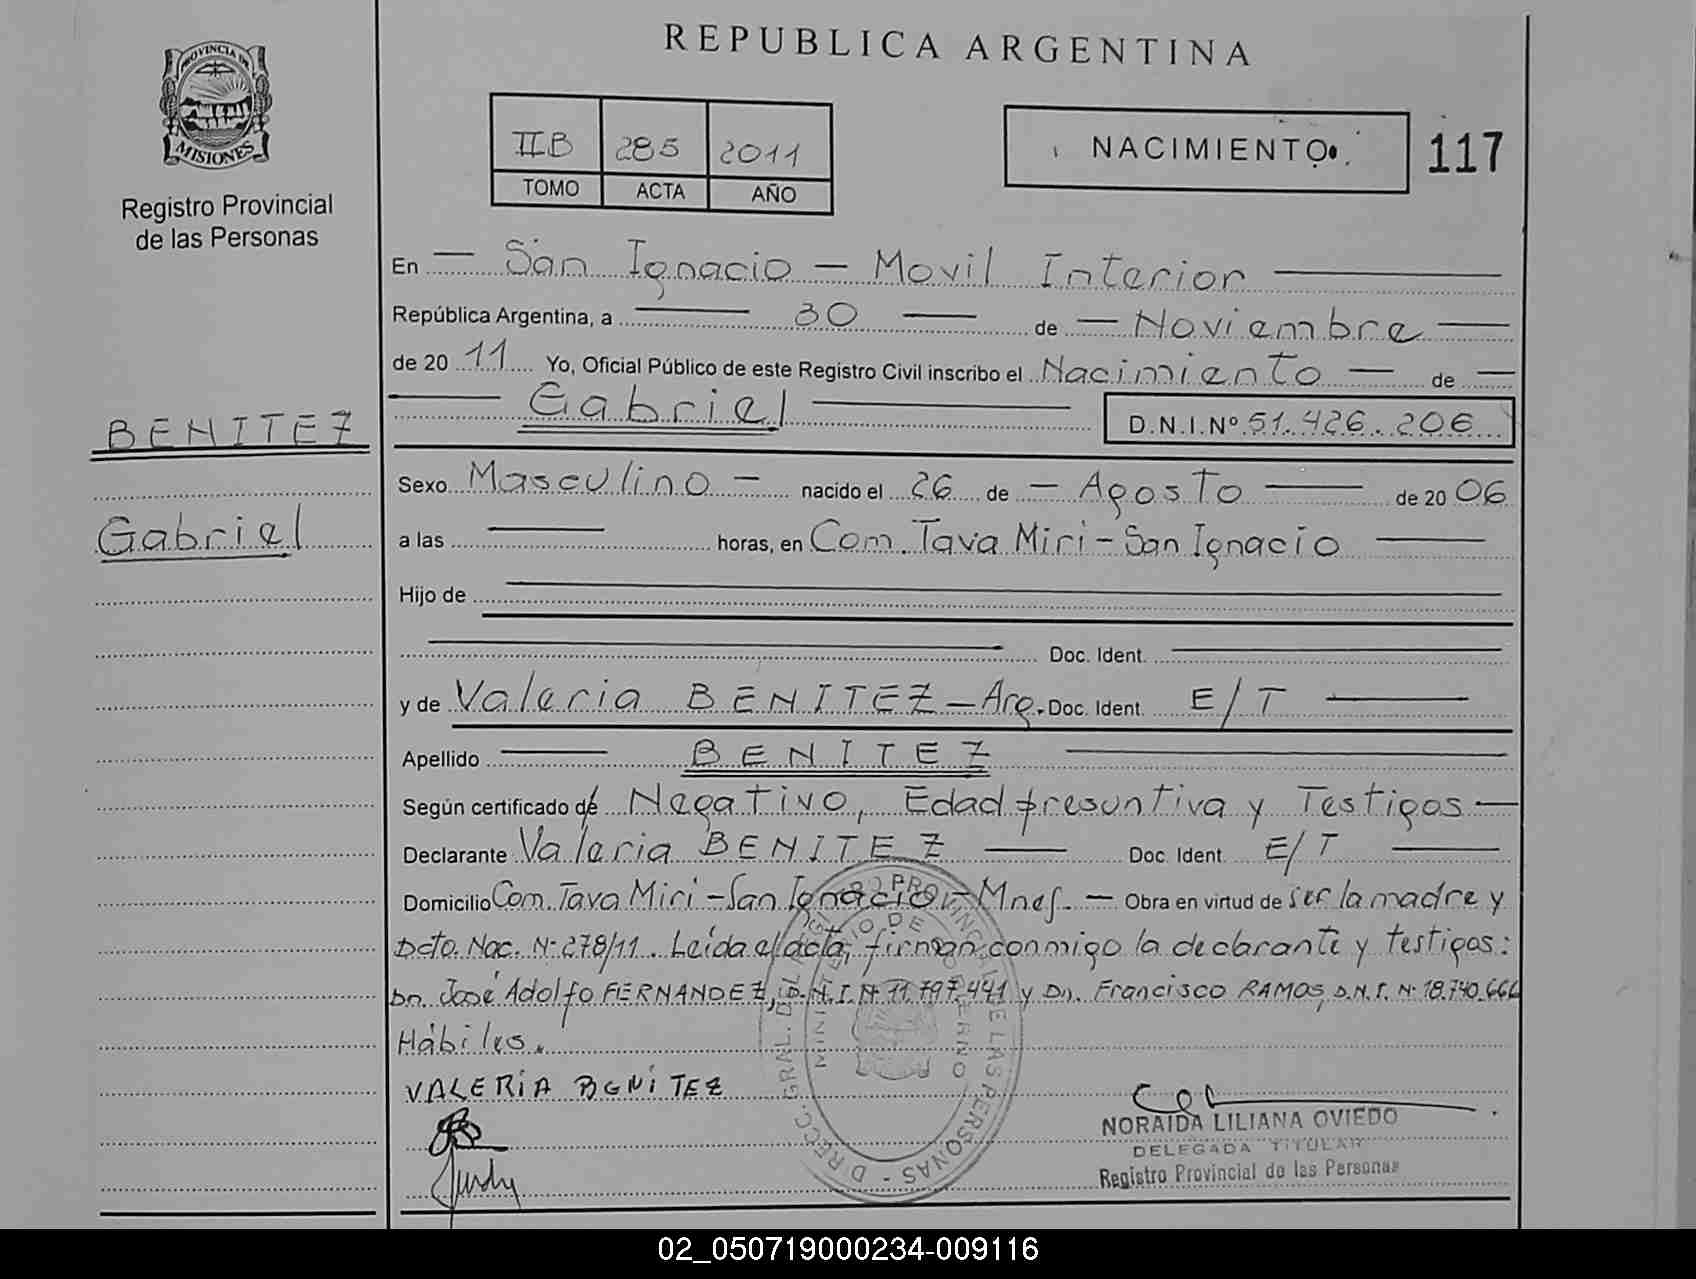 REPUBLICA ARGENTINA
PROVINCIA DE
MISIONES
Registro Provincial
de las Personas
IIB 285 2011
TOMO ACTA AÑO
NACIMIENTO
117
En San Ignacio - Movil Interior
República Argentina, a 30 de Noviembre
de 2011 Yo, Oficial Público de este Registro Civil inscribo el Nacimiento de
Gabriel D.N.I.Nº 51.426.206
BENITEZ
Gabriel
Sexo Masculino nacido el 26 de Agosto de 2006
a las horas, en Com. Tava Miri - San Ignacio
Hijo de
Doc. Ident.
y de Valeria BENITEZ - Arg. Doc. Ident. E/T
Apellido BENITEZ
Según certificado de Negativo, Edad presuntiva y Testigos
Declarante Valeria BENITEZ Doc. Ident. E/T
Domicilio Com. Tava Miri - San Ignacio - Mnes. - Obra en virtud de ser la madre y
Dcto. Nac. Nº 278/11. Leída el acta, firman conmigo la declarante y testigos:
Dn. José Adolfo FERNANDEZ, D.N.I. Nº 11.797.441 y Dn. Francisco RAMOS, D.N.I. Nº 18.740.666
Hábiles.
VALERIA BENITEZ
NORAIDA LILIANA OVIEDO
DELEGADA TITULAR
Registro Provincial de las Personas
DIRECC. GRAL. DEL REGISTRO PROVINCIAL DE LAS PERSONAS
MINISTERIO DE GOBIERNO
02_050719000234-009116